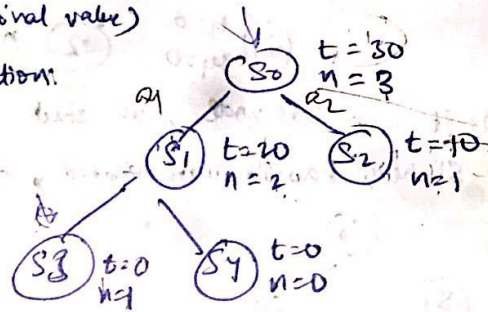 inal value)
tion:
S0
t = 30
n = 3
a1
a2
S1
t=20
n=2
S2
t=10
n=1
S3
t=0
n=1
S4
t=0
n=0